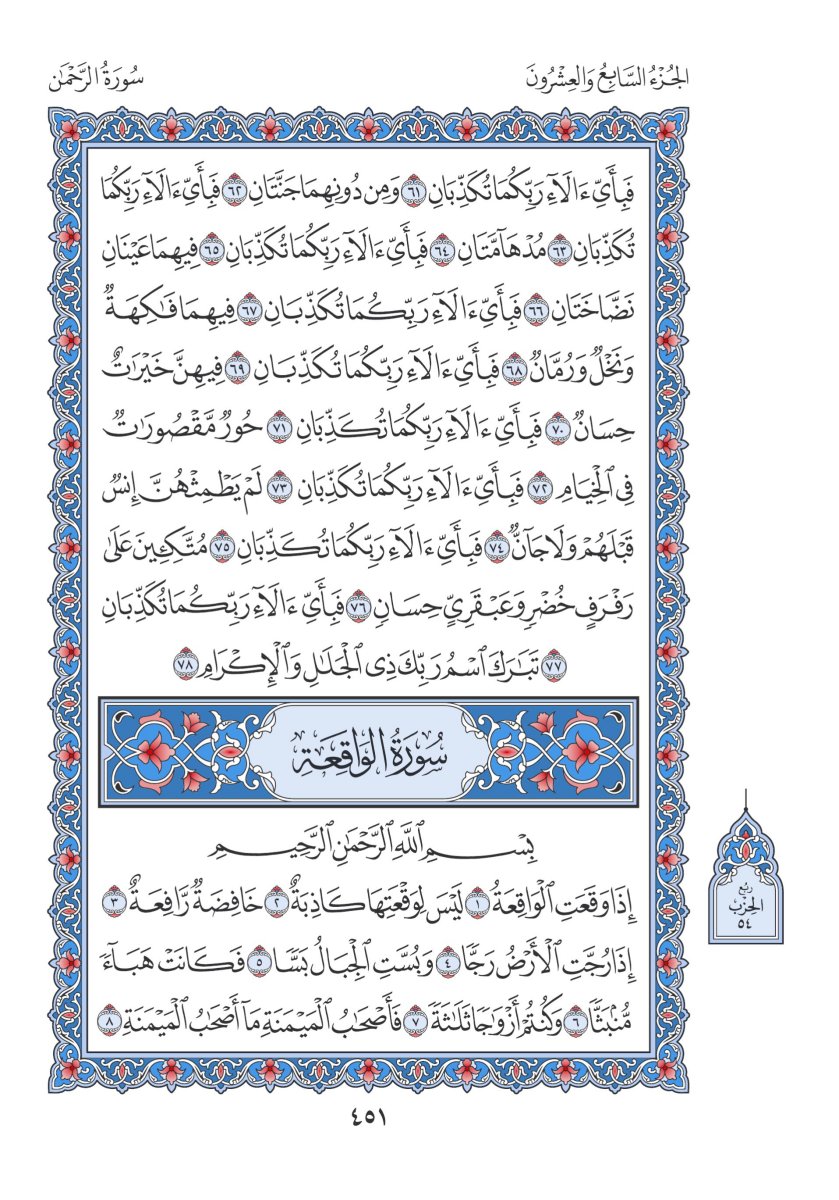 الجُزْءُ السَّابِعُ وَالعِشْرُونَ
سُورَةُ الرَّحْمَٰن
فَبِأَيِّ ءَالَآءِ رَبِّكُمَا تُكَذِّبَانِ ٦١ وَمِن دُونِهِمَا جَنَّتَانِ ٦٢ فَبِأَيِّ ءَالَآءِ رَبِّكُمَا
تُكَذِّبَانِ ٦٣ مُدْهَآمَّتَانِ ٦٤ فَبِأَيِّ ءَالَآءِ رَبِّكُمَا تُكَذِّبَانِ ٦٥ فِيهِمَا عَيْنَانِ
نَضَّاخَتَانِ ٦٦ فَبِأَيِّ ءَالَآءِ رَبِّكُمَا تُكَذِّبَانِ ٦٧ فِيهِمَا فَٰكِهَةٌ
وَنَخْلٌ وَرُمَّانٌ ٦٨ فَبِأَيِّ ءَالَآءِ رَبِّكُمَا تُكَذِّبَانِ ٦٩ فِيهِنَّ خَيْرَٰتٌ
حِسَانٌ ٧٠ فَبِأَيِّ ءَالَآءِ رَبِّكُمَا تُكَذِّبَانِ ٧١ حُورٌ مَّقْصُورَٰتٌ
فِي ٱلْخِيَامِ ٧٢ فَبِأَيِّ ءَالَآءِ رَبِّكُمَا تُكَذِّبَانِ ٧٣ لَمْ يَطْمِثْهُنَّ إِنسٌ
قَبْلَهُمْ وَلَا جَآنٌّ ٧٤ فَبِأَيِّ ءَالَآءِ رَبِّكُمَا تُكَذِّبَانِ ٧٥ مُتَّكِـِٔينَ عَلَىٰ
رَفْرَفٍ خُضْرٍ وَعَبْقَرِيٍّ حِسَانٍ ٧٦ فَبِأَيِّ ءَالَآءِ رَبِّكُمَا تُكَذِّبَانِ
٧٧ تَبَٰرَكَ ٱسْمُ رَبِّكَ ذِي ٱلْجَلَٰلِ وَٱلْإِكْرَامِ ٧٨
سُورَةُ الوَاقِعَةِ
بِسْمِ ٱللَّهِ ٱلرَّحْمَٰنِ ٱلرَّحِيمِ
إِذَا وَقَعَتِ ٱلْوَاقِعَةُ ١ لَيْسَ لِوَقْعَتِهَا كَاذِبَةٌ ٢ خَافِضَةٌ رَّافِعَةٌ ٣
إِذَا رُجَّتِ ٱلْأَرْضُ رَجًّا ٤ وَبُسَّتِ ٱلْجِبَالُ بَسًّا ٥ فَكَانَتْ هَبَآءً
مُّنۢبَثًّا ٦ وَكُنتُمْ أَزْوَٰجًا ثَلَٰثَةً ٧ فَأَصْحَٰبُ ٱلْمَيْمَنَةِ مَآ أَصْحَٰبُ ٱلْمَيْمَنَةِ ٨
رُبع
الحِزْب
٥٤
٤٥١